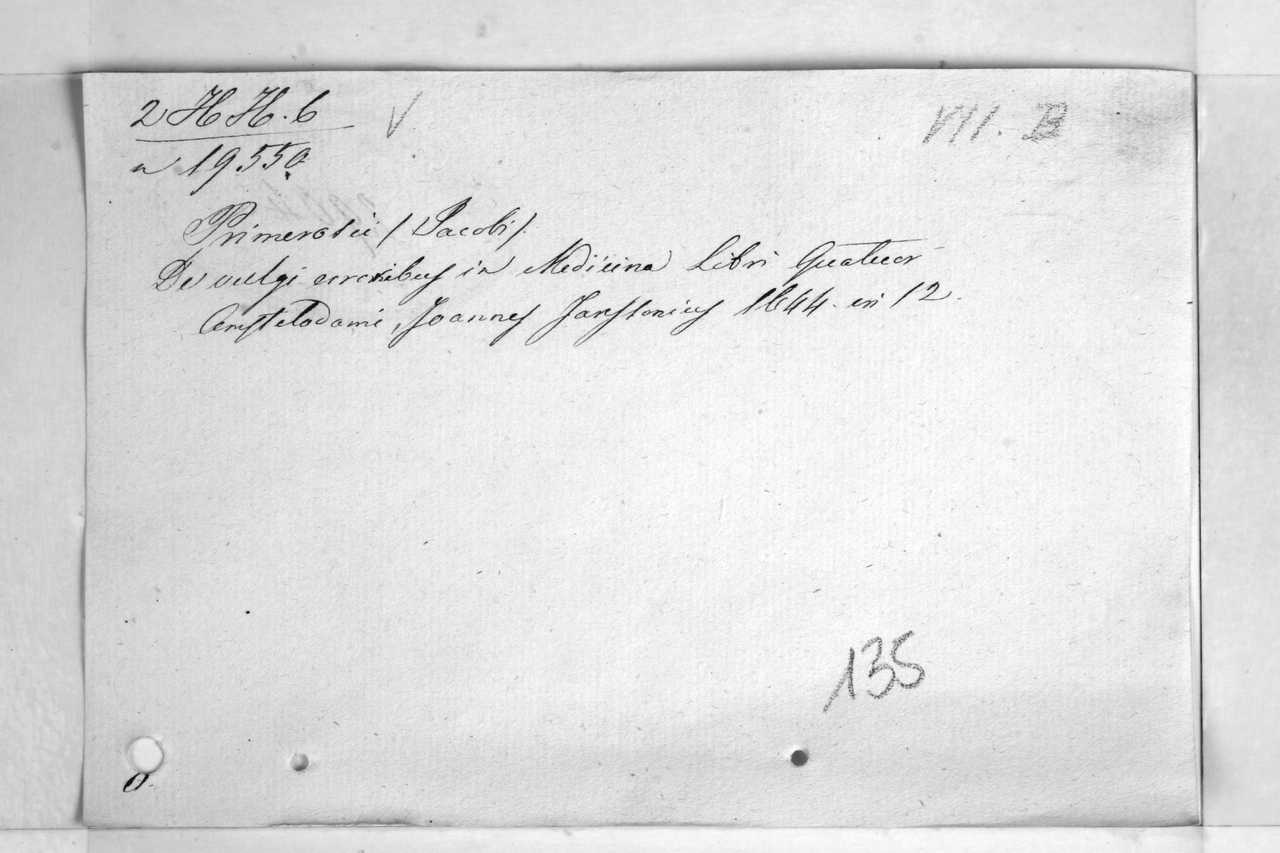 2 H H. 6 V VII. B
n 19550.
Primerosii / Jacobi /.
De vulgi erroribus in Medicina Libri Quatuor
Amstelodami, Joannes Janssonius 1644. in 12.
135
O.